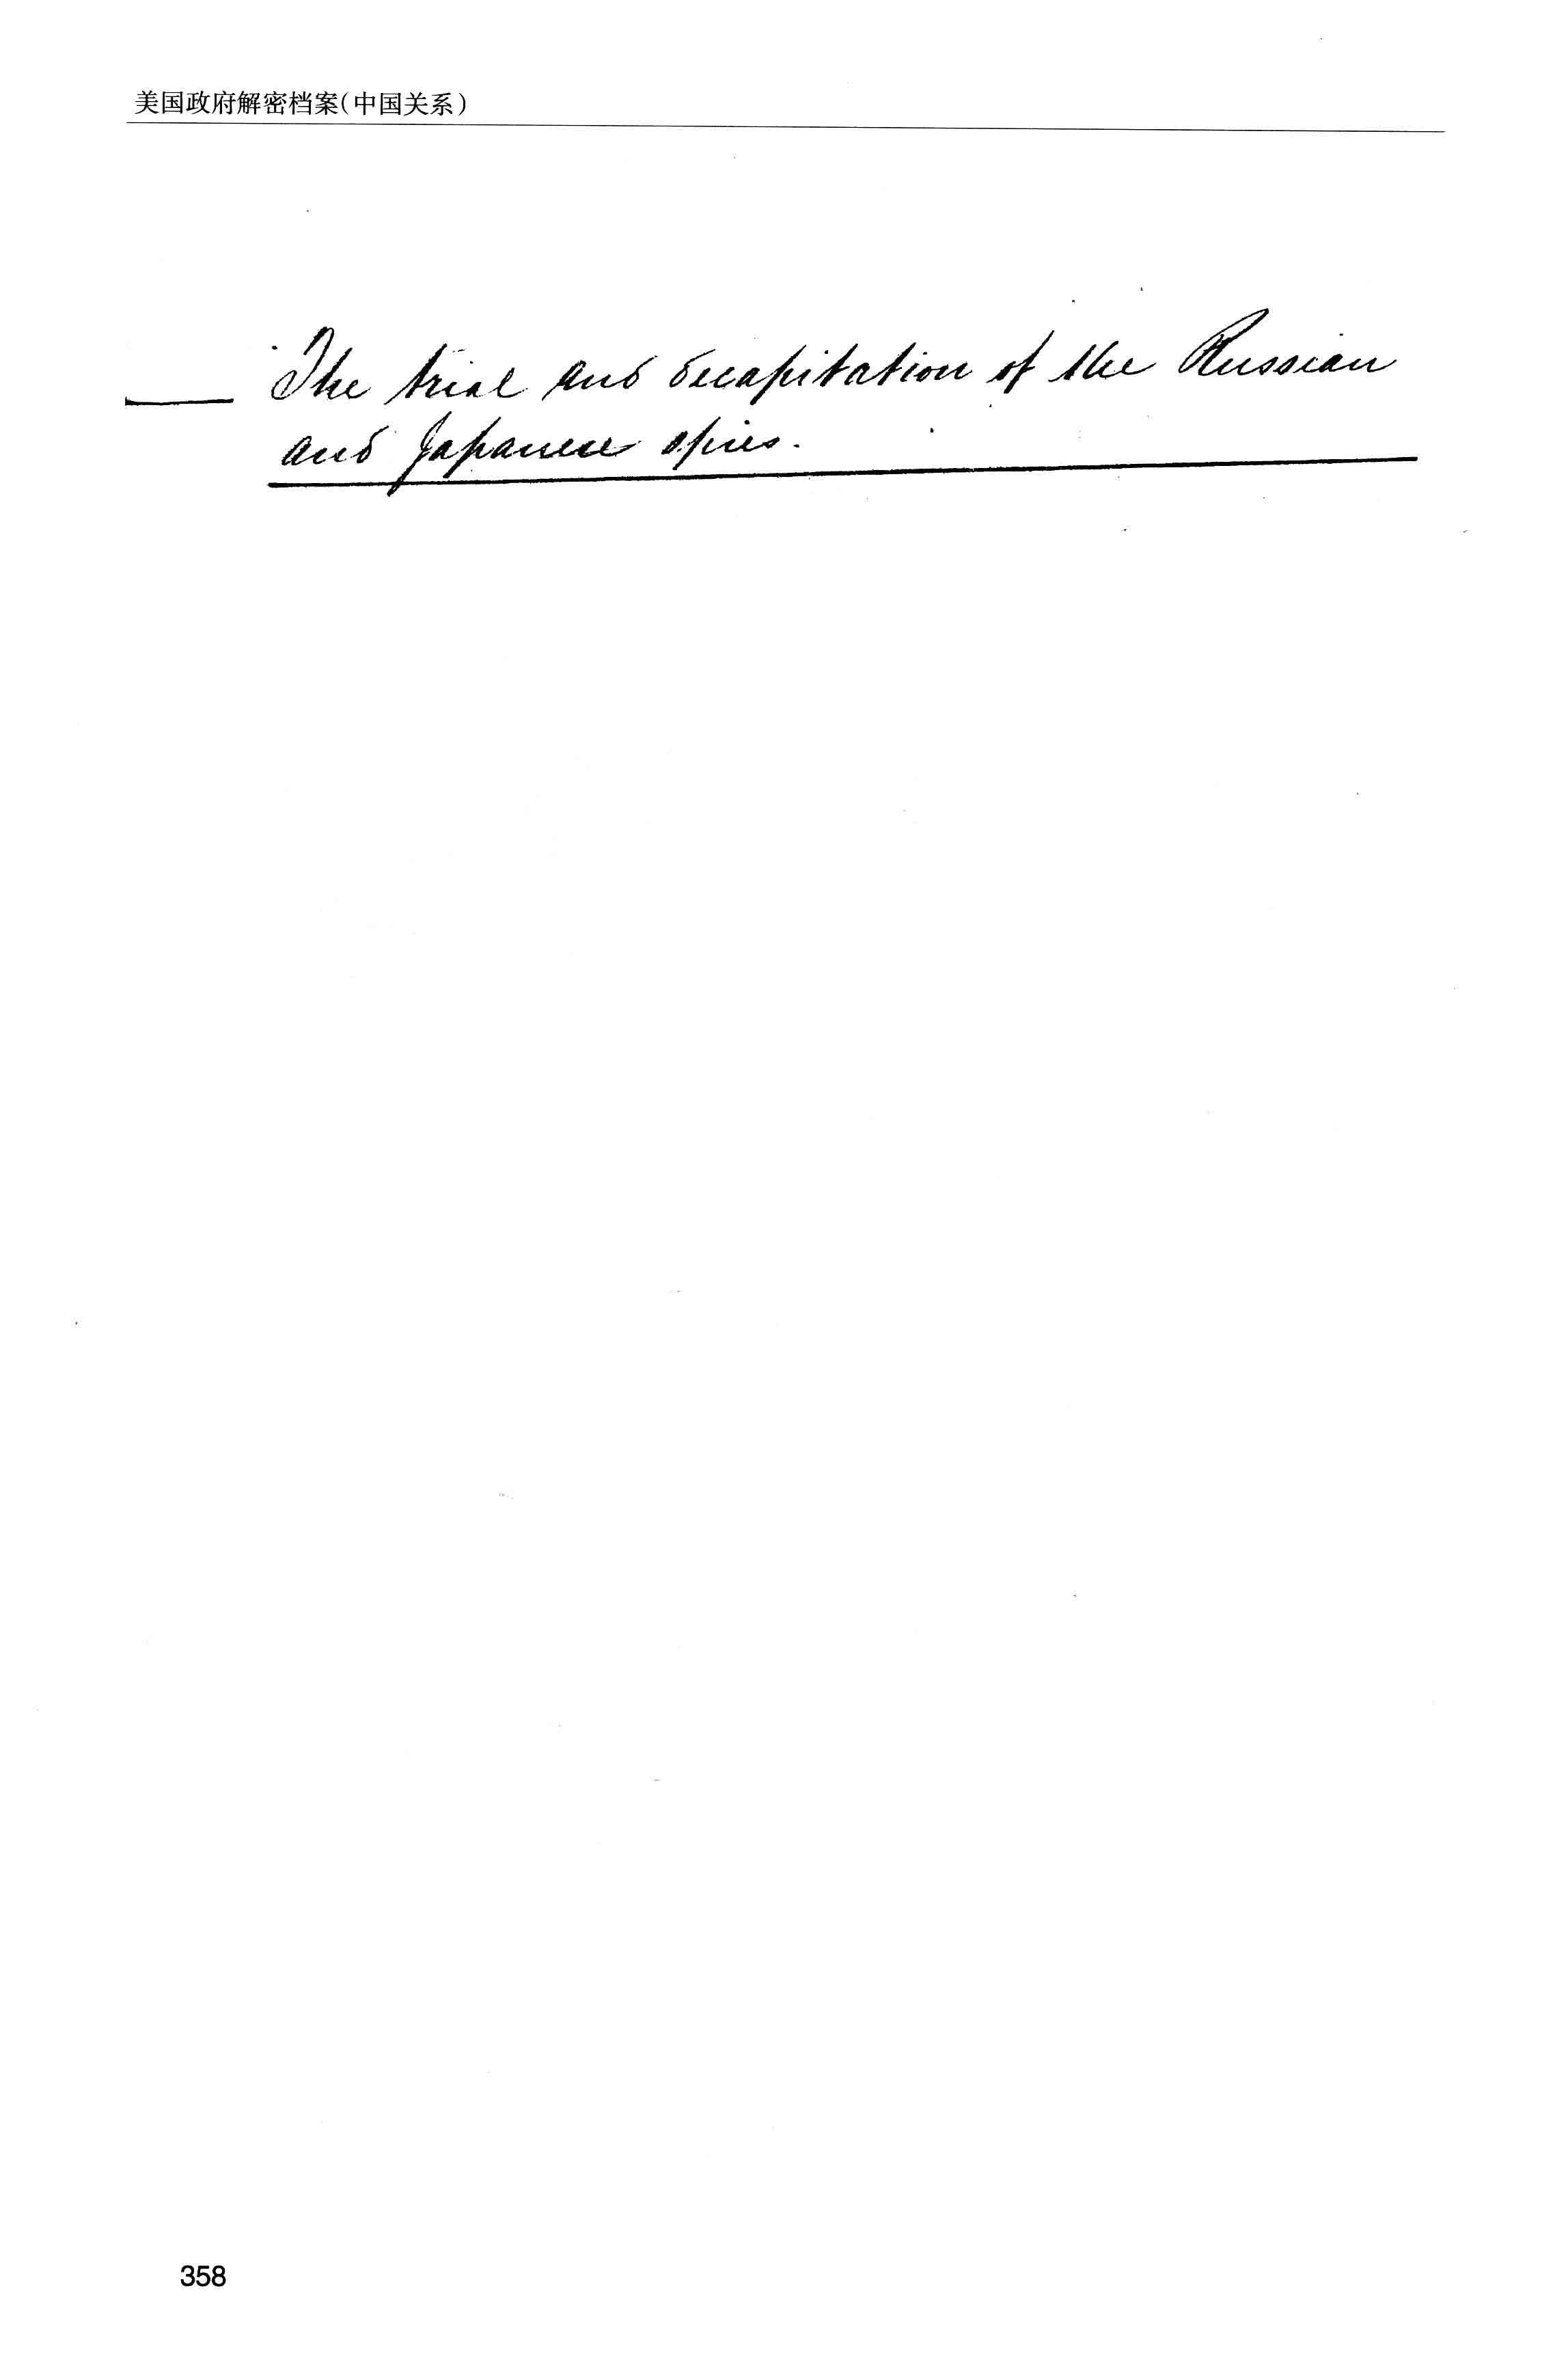 美国政府解密档案(中国关系)
The trial and decapitation of the Russian
and Japanese spies.
358